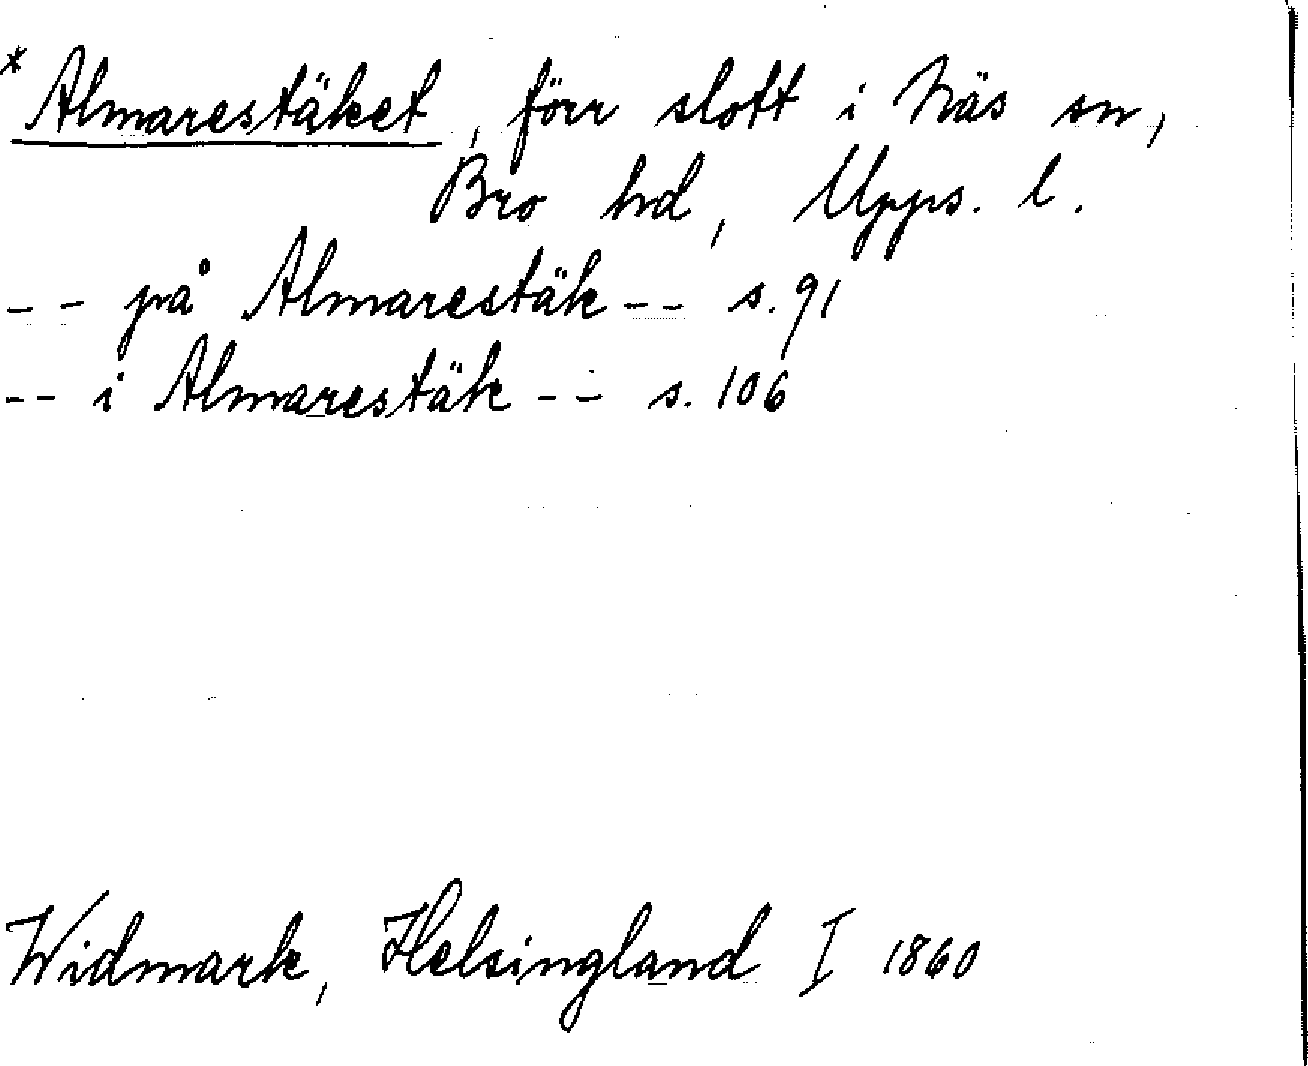 * Almarestäket, förr slott i Näs sn,
Bro hd, Upps. l.
-- på Almarestäk -- s. 91
-- i Almarestäk -- s. 106
Widmark, Helsingland I 1860